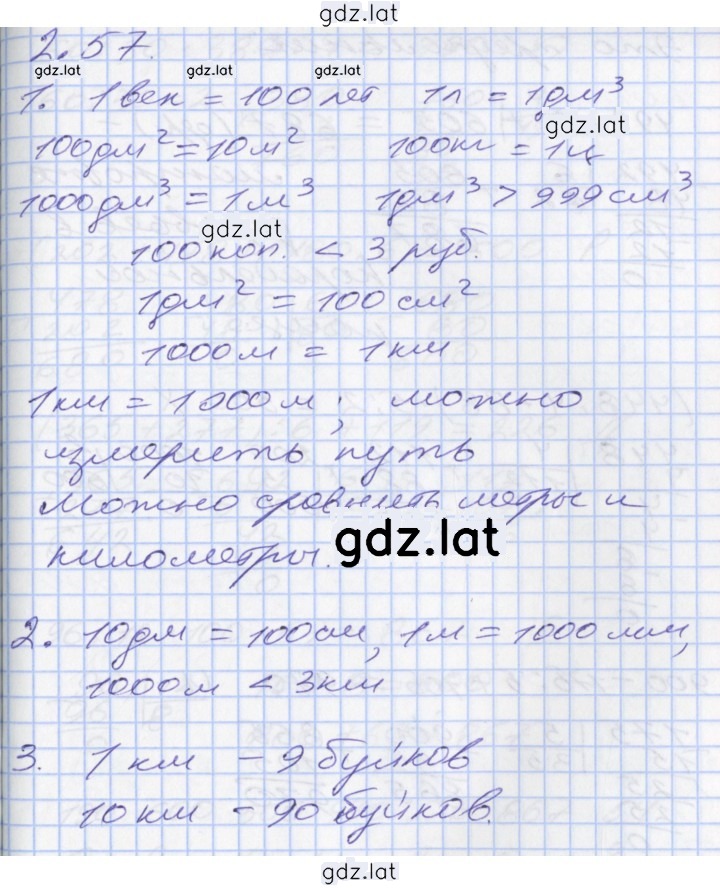 gdz.lat
2.57.
gdz.lat gdz.lat gdz.lat
1. 1 век = 100 лет 1л = 1дм³
gdz.lat
100дм² = 10м² 100кг = 1ц
1000дм³ = 1м³ 1дм³ > 999см³
gdz.lat
100 коп. < 3 руб.
1дм² = 100 см²
1000м = 1км
1км = 1000м; можно
измерить путь
Можно сравнить метры и
километры.
gdz.lat
2. 10дм = 100см, 1м = 1000мм,
1000м < 3км
3. 1 км – 9 буйков
10 км – 90 буйков.
gdz.lat